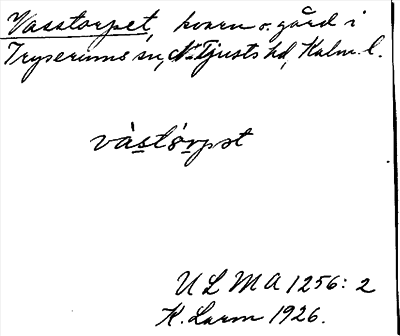 Vasstorpet, kvarn o. gård i
Tryserums sn, N. Tjusts hd, Kalm. l.
vàstårpət
ULMA 1256: 2
K. Larm 1926.